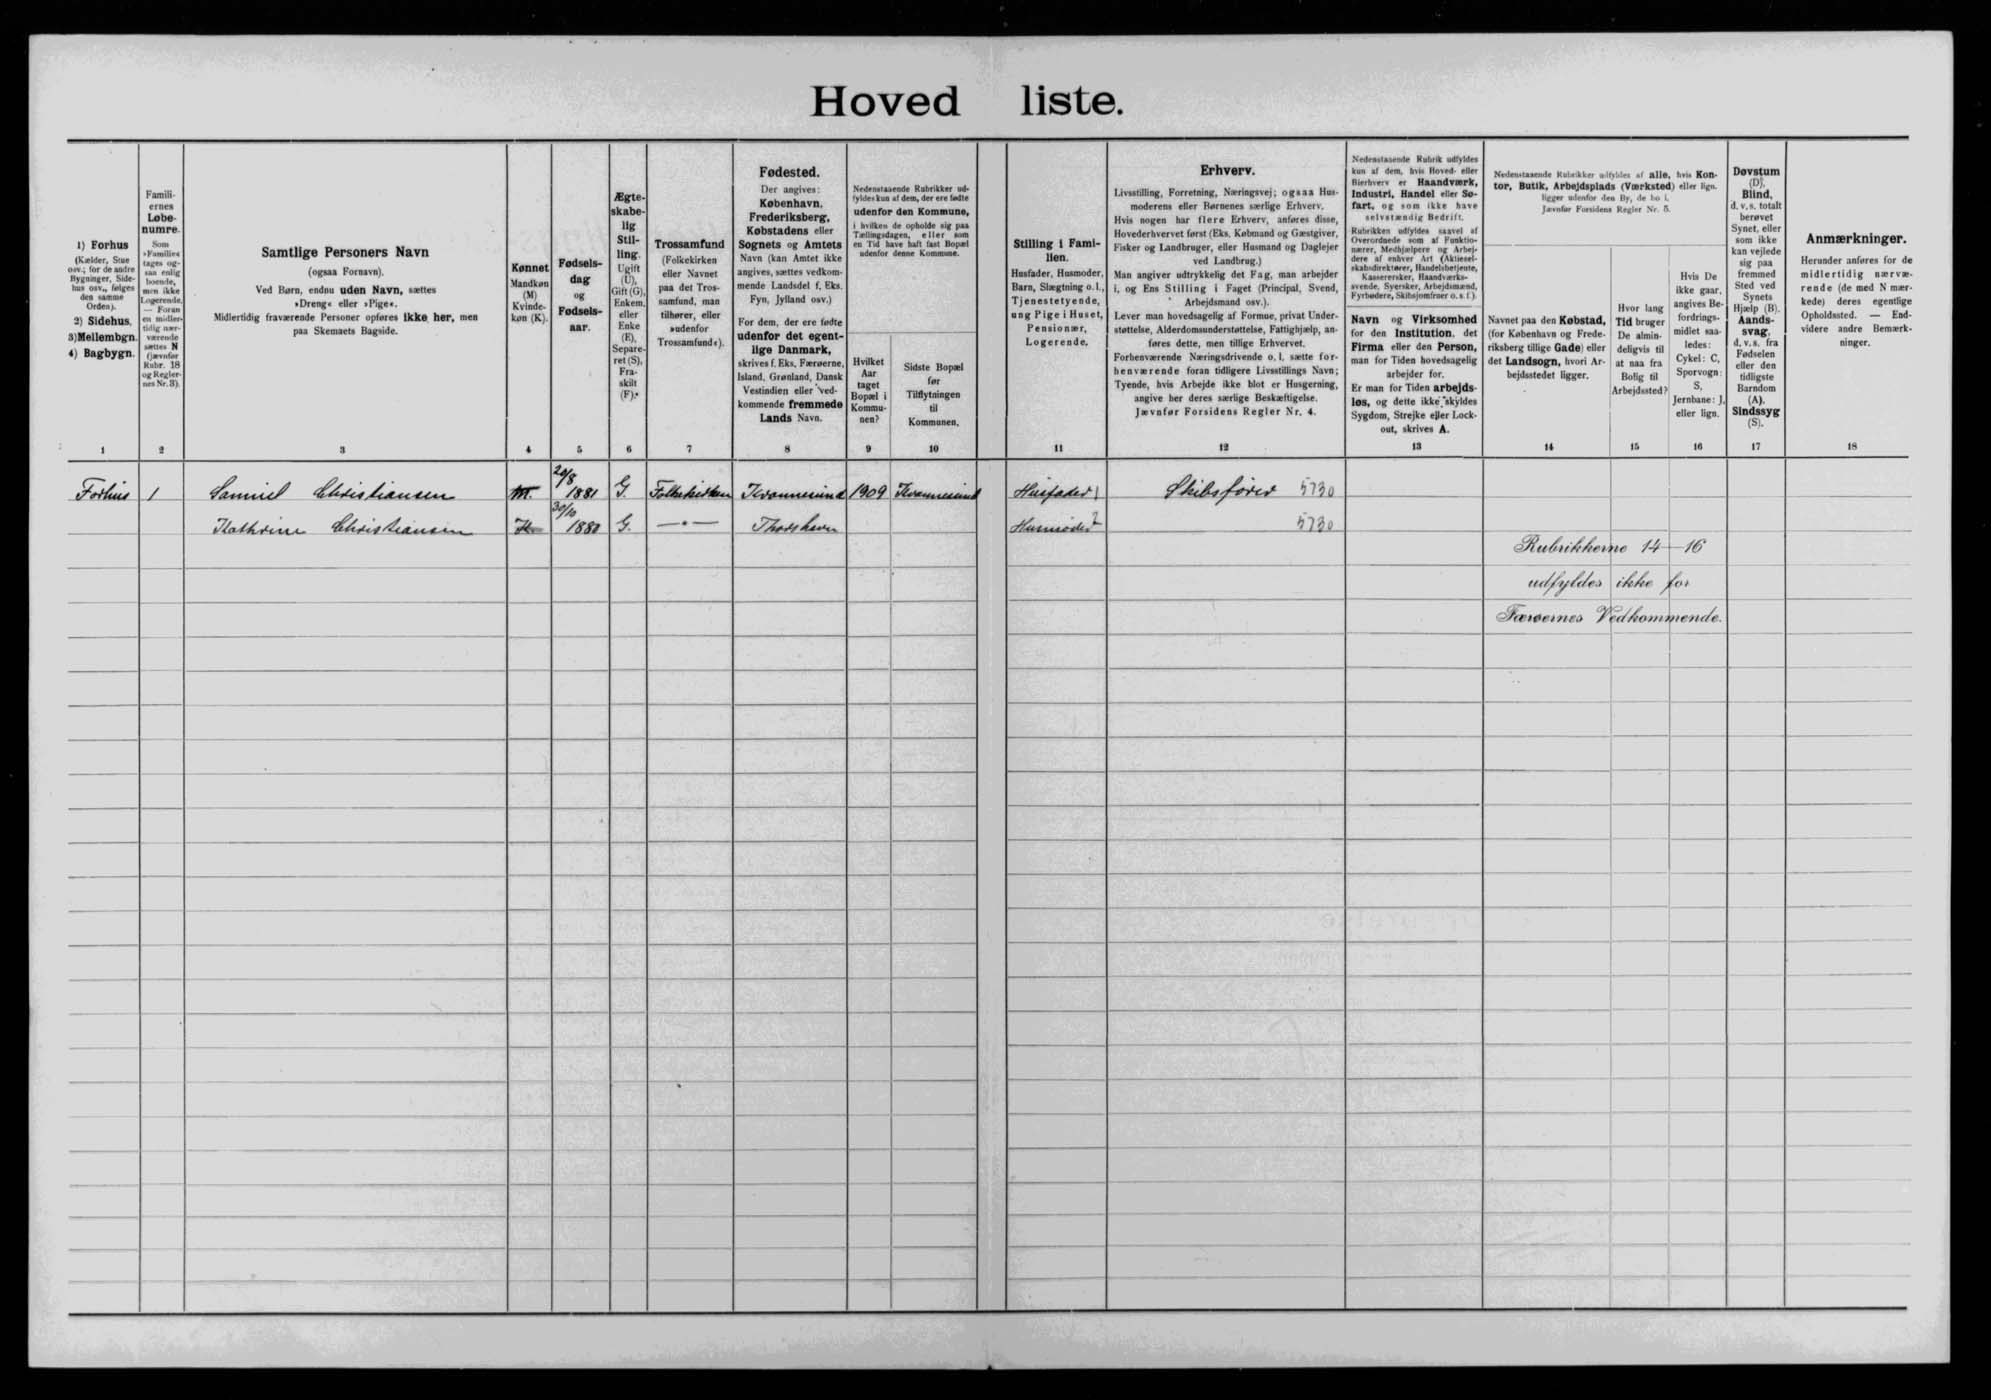 Hoved liste.
1) Forhus
(Kælder, Stue
osv.; for de andre
Bygninger, Side-
hus osv., følges
den samme
Orden).
2) Sidehus,
3) Mellembgn.
4) Bagbygn.
Famili-
ernes
Løbe-
numre.
Som
»Familie«
tages og-
saa enlig
boende,
men ikke
Logerende.
— Foran
en midler-
tidig nær-
værende
sættes N
(jævnfør
Rubr. 18
og Regler-
nes Nr. 3).
Samtlige Personers Navn
(ogsaa Fornavn).
Ved Børn, endnu uden Navn, sættes
»Dreng« eller »Pige«.
Midlertidig fraværende Personer opføres ikke her, men
paa Skemaets Bagside.
Kønnet
Mandkøn
(M)
Kvinde-
køn (K).
Fødsels-
dag
og
Fødsels-
aar.
Ægte-
skabe-
lig
Stil-
ling.
Ugift
(U),
Gift (G),
Enkem.
eller
Enke
(E),
Separe-
ret (S),
Fra-
skilt
(F).
Trossamfund
(Folkekirken
eller Navnet
paa det Tros-
samfund, man
tilhører, eller
»udenfor
Trossamfund«).
Fødested.
Der angives:
København,
Frederiksberg,
Købstadens eller
Sognets og Amtets
Navn (kan Amtet ikke
angives, sættes vedkom-
mende Landsdel f. Eks.
Fyn, Jylland osv.)
For dem, der ere fødte
udenfor det egent-
lige Danmark,
skrives f. Eks. Færøerne,
Island, Grønland, Dansk
Vestindien eller ved-
kommende fremmede
Lands Navn.
Nedenstaaende Rubrikker ud-
fyldes kun af dem, der ere fødte
udenfor den Kommune,
i hvilken de opholde sig paa
Tællingsdagen, eller som
en Tid have haft fast Bopæl
udenfor denne Kommune.
Hvilket
Aar
taget
Bopæl i
Kommu-
nen?
Sidste Bopæl
før
Tilflytningen
til
Kommunen.
Stilling i Fami-
lien.
Husfader, Husmoder,
Barn, Slægtning o. l.,
Tjenestetyende,
ung Pige i Huset,
Pensionær,
Logerende.
Erhverv.
Livsstilling, Forretning, Næringsvej; ogsaa Hus-
moderens eller Børnenes særlige Erhverv.
Hvis nogen har flere Erhverv, anføres disse,
Hovederhvervet først (Eks. Købmand og Gæstgiver,
Fisker og Landbruger, eller Husmand og Daglejer
ved Landbrug.)
Man angiver udtrykkelig det Fag, man arbejder
i, og Ens Stilling i Faget (Principal, Svend,
Arbejdsmand osv.).
Lever man hovedsagelig af Formue, privat Under-
støttelse, Alderdomsunderstøttelse, Fattighjælp, an-
føres dette, men tillige Erhvervet.
Forhenværende Næringsdrivende o. l. sætte for-
henværende foran tidligere Livsstillings Navn;
Tyende, hvis Arbejde ikke blot er Husgerning,
angive her deres særlige Beskæftigelse.
Jævnfør Forsidens Regler Nr. 4.
Nedenstaaende Rubrik udfyldes
kun af dem, hvis Hoved- eller
Bierhverv er Haandværk,
Industri, Handel eller Sø-
fart, og som ikke have
selvstændig Bedrift.
Rubrikken udfyldes saavel af
Overordnede som af Funktio-
nærer, Medhjælpere og Arbej-
dere af enhver Art (Aktiesel-
skabsdirektører, Handelsbetjente,
Kasserersker, Haandværks-
svende, Syersker, Arbejdsmænd,
Fyrbødere, Skibsjomfruer o. s. f.).
Navn og Virksomhed
for den Institution, det
Firma eller den Person,
man for Tiden hovedsagelig
arbejder for.
Er man for Tiden arbejds-
løs, og dette ikke skyldes
Sygdom, Strejke eller Lock-
out, skrives A.
Nedenstaaende Rubrikker udfyldes af alle, hvis Kon-
tor, Butik, Arbejdsplads (Værksted) eller lign.
ligger udenfor den By, de bo i.
Jævnfør Forsidens Regler Nr. 5.
Navnet paa den Købstad,
(for København og Frede-
riksberg tillige Gade) eller
det Landsogn, hvori Ar-
bejdsstedet ligger.
Hvor lang
Tid bruger
De almin-
deligvis til
at naa fra
Bolig til
Arbejdssted?
Hvis De
ikke gaar,
angives Be-
fordrings-
midlet saa-
ledes:
Cykel: C,
Sporvogn:
S,
Jernbane: J,
eller lign.
Døvstum
(D),
Blind,
d. v. s. totalt
berøvet
Synet, eller
som ikke
kan vejlede
sig paa
fremmed
Sted ved
Synets
Hjælp (B).
Aands-
svag,
d. v. s. fra
Fødselen
eller den
tidligste
Barndom
(A).
Sindssyg
(S).
Anmærkninger.
Herunder anføres for de
midlertidig nærvæ-
rende (de med N mær-
kede) deres egentlige
Opholdssted. — End-
videre andre Bemærk-
ninger.
1 2 3 4 5 6 7 8 9 10 11 12 13 14 15 16 17 18
Forhus 1 Samuel Christiansen M. 20/8 1881 G. Folkekirken Kvannesund 1909 Kvannesund Husfader 1 Skibsfører 5730
Kathrine Christiansen K 30/10 1880 G. —"— Thorshavn Husmoder 2 5730
Rubrikkerne 14–16
udfyldes ikke for
Færøernes Vedkommende.